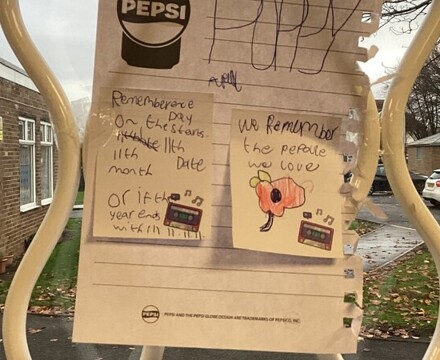 PEPSI
POPPY
Rememberence
On the Day
On the stairs.
11th
11th
Date
month
Or if the
year ends
with 11 11.11.11.
we Remember
the pepole
we love
PEPSI
PEPSI AND THE PEPSI GLOBE DESIGN ARE TRADEMARKS OF PEPSICO, INC.